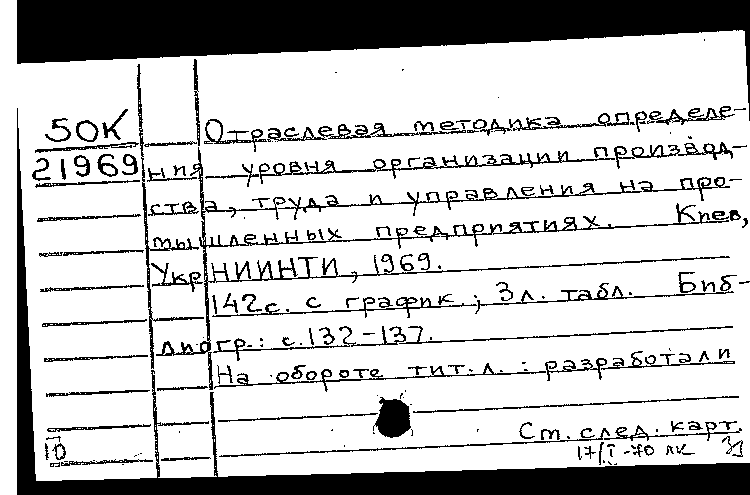 50К
21969
Отраслевая методика определе-
ния уровня организации производ-
ства, труда и управления на про-
мышленных предприятиях. Киев,
УкрНИИНТИ, 1969.
142с. с график.; 3л. табл. Биб-
лиогр.: с.132-137.
На обороте тит.л.: разработали
См. след. карт.
10
17/I-70 ЛК